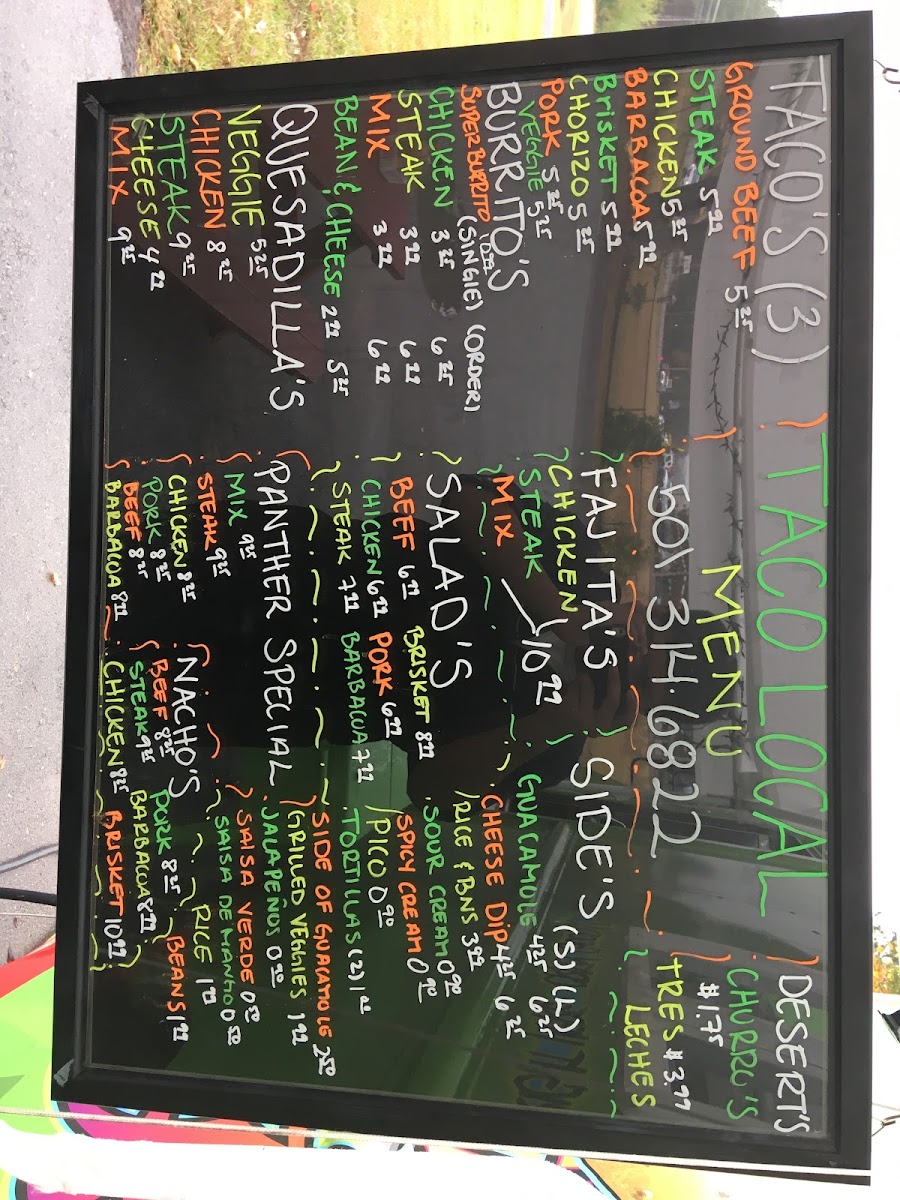 TACO LOCAL
MENU
501 314.6822
TACO'S (3)
GROUND BEEF 5 25
STEAK 5 99
CHICKEN 5 25
BARBACOA 5 99
BRISKET 5 99
CHORIZO 5 25
PORK 5 25
VEGGIE 5 25
BURRITO'S
SUPER BURRITO 10 99
(SINGLE) (ORDER)
CHICKEN 3 25 6 25
STEAK 3 99 6 99
MIX 3 99 6 99
BEAN & CHEESE 2 99 5 25
QUESADILLA'S
VEGGIE 5 25
CHICKEN 8 25
STEAK 9 25
CHEESE 4 99
MIX 9 25
FAJITA'S
CHICKEN
STEAK 10 99
MIX
SALAD'S
BEEF 6 99 BRISKET 8 99
CHICKEN 6 99 PORK 6 99
STEAK 7 99 BARBACOA 7 99
PANTHER SPECIAL
MIX 9 25
STEAK 9 25
CHICKEN 8 25
PORK 8 25
BEEF 8 25
BARBACOA 8 99
NACHO'S
BEEF 8 25 PORK 8 25
STEAK 9 25 BARBACOA 8 99
CHICKEN 8 25 BRISKET 10 99
SIDE'S (S) (L)
GUACAMOLE 4 25 6 25
CHEESE DIP 4 25 6 25
RICE & BNS 3 99
SOUR CREAM 0 90
SPICY CREAM 0 90
PICO 0 90
TORTILLAS (2) 1
SIDE OF GUACAMOLE 2 50
GRILLED VEGGIES 1 99
JALAPEÑOS 0 50
SALSA VERDE 0 50
SALSA DE MANGO 0 50
RICE 1 99
BEANS 1 99
DESERT'S
CHURRO'S
$1.75
TRES $3.99
LECHES